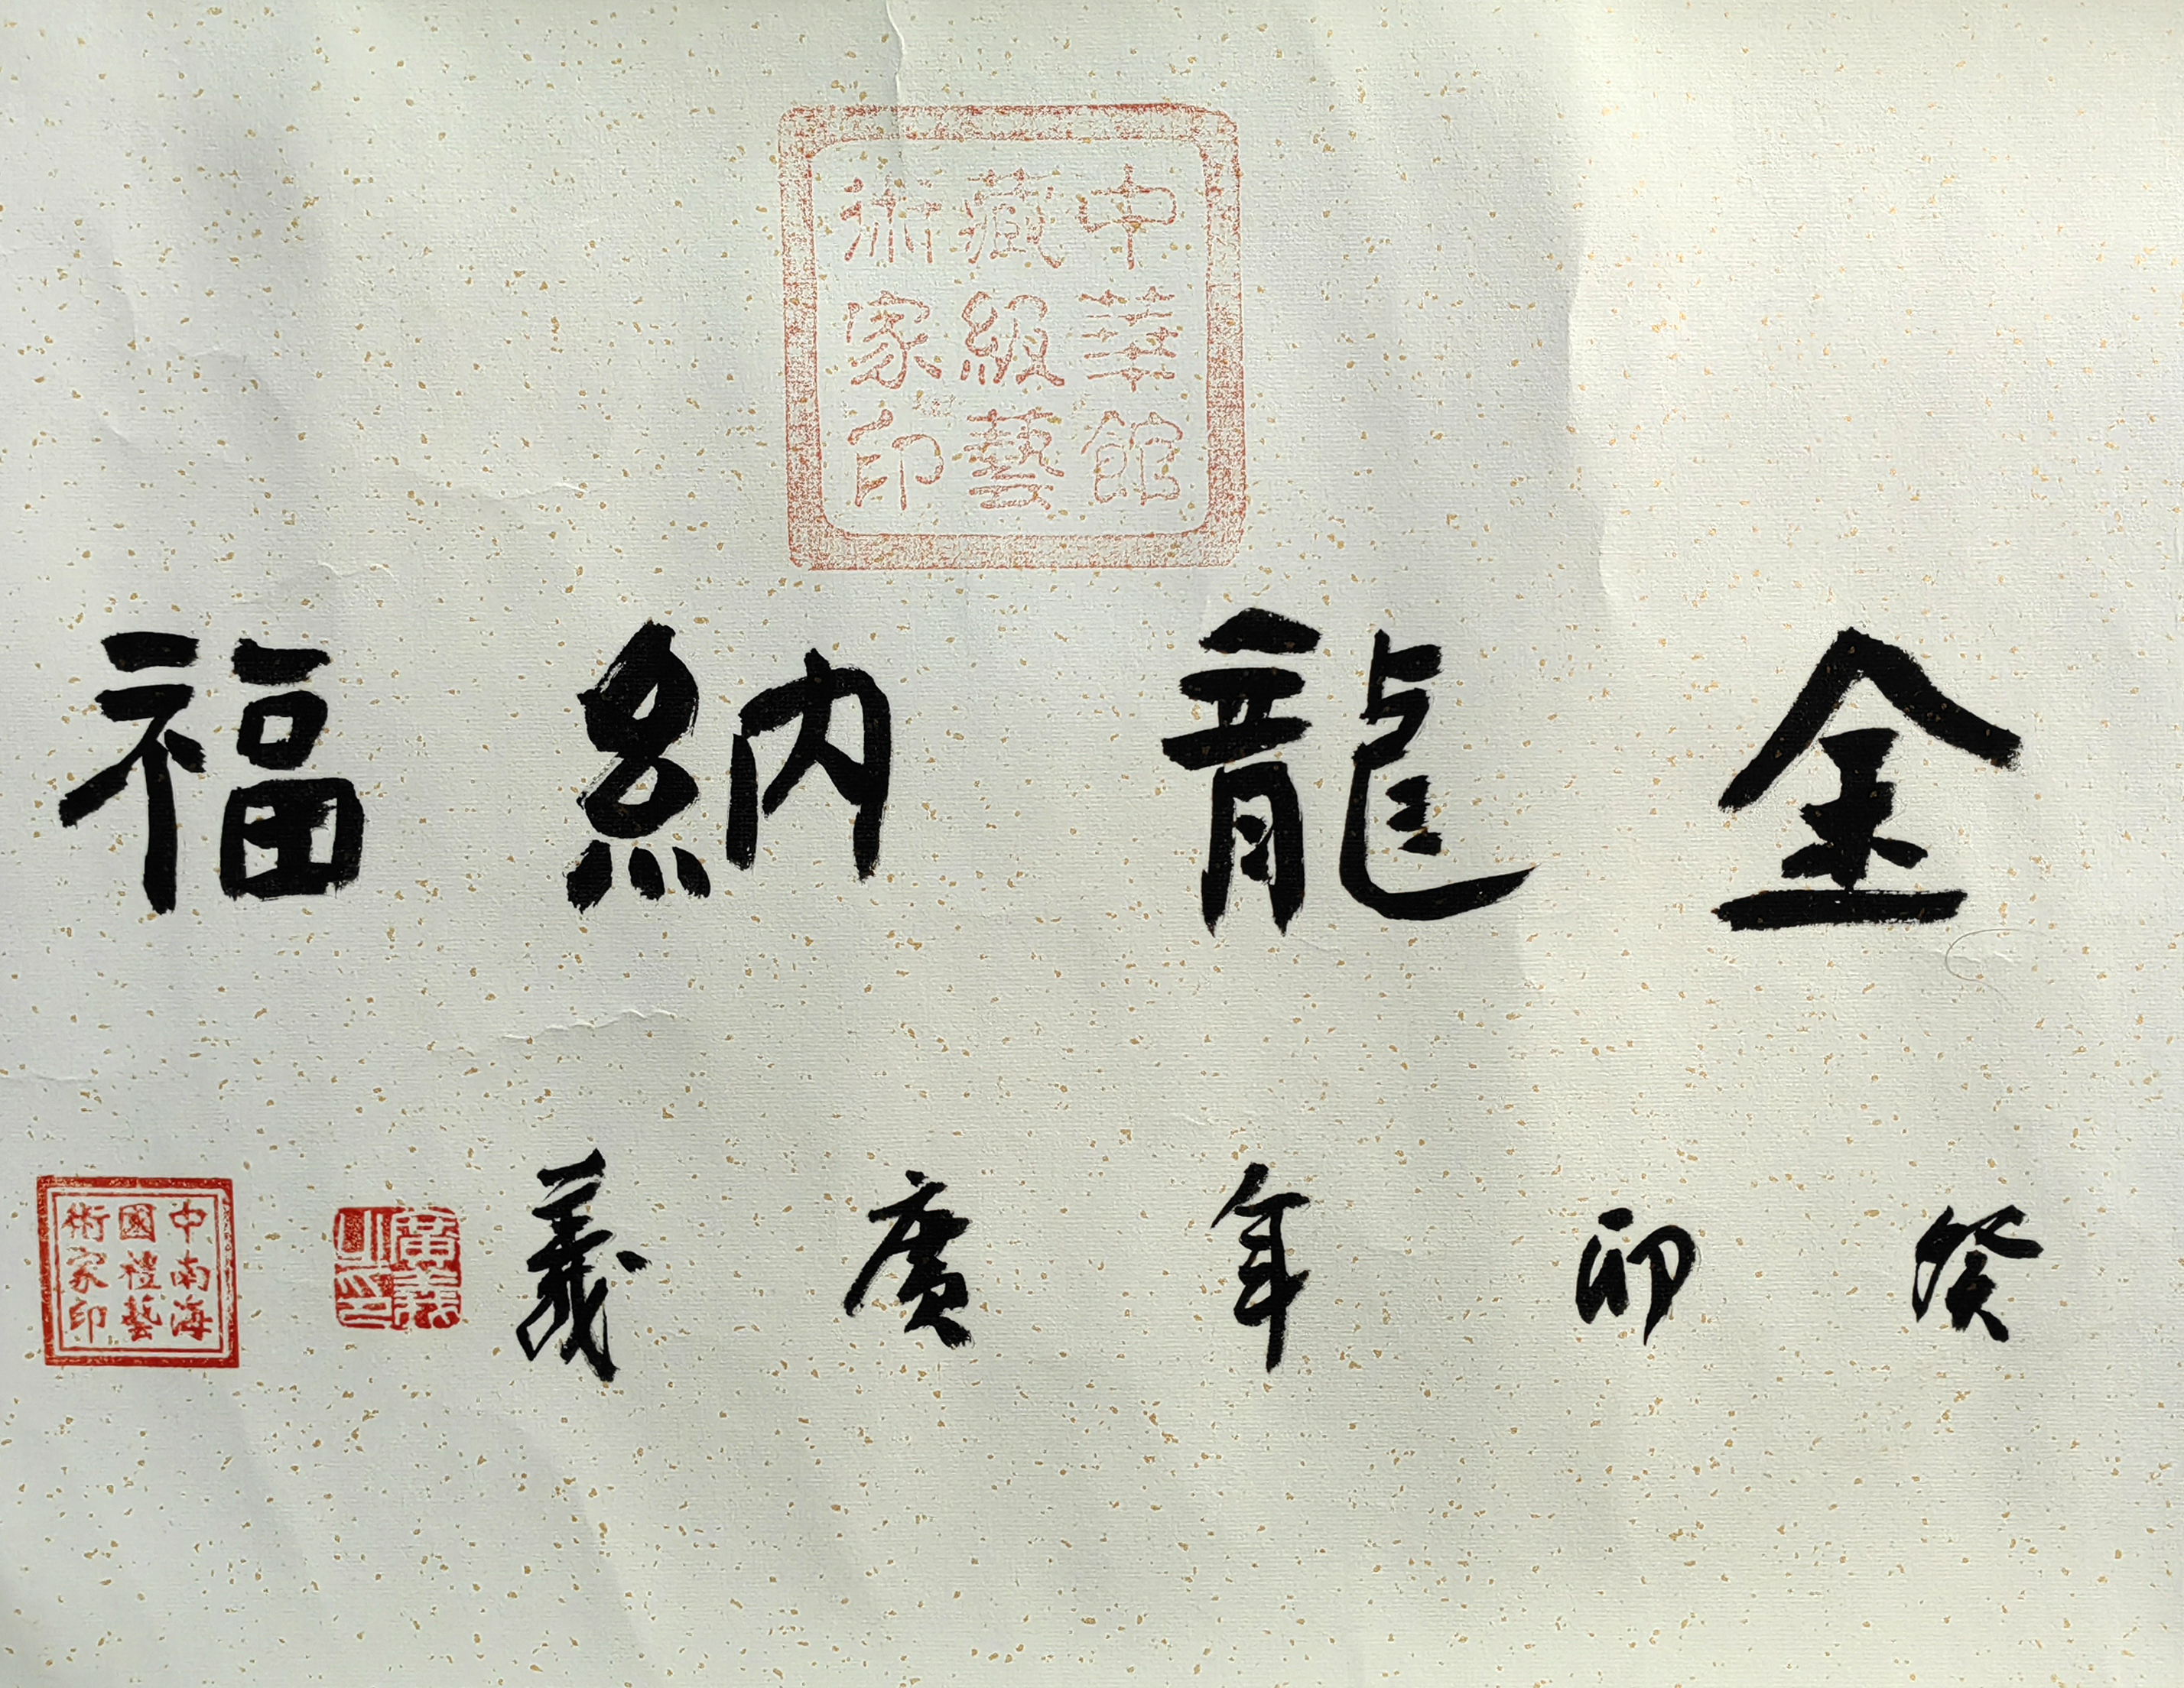 中華館藏級藝術家印
金龍納福
癸卯年廣義
中南海國禮藝術家印